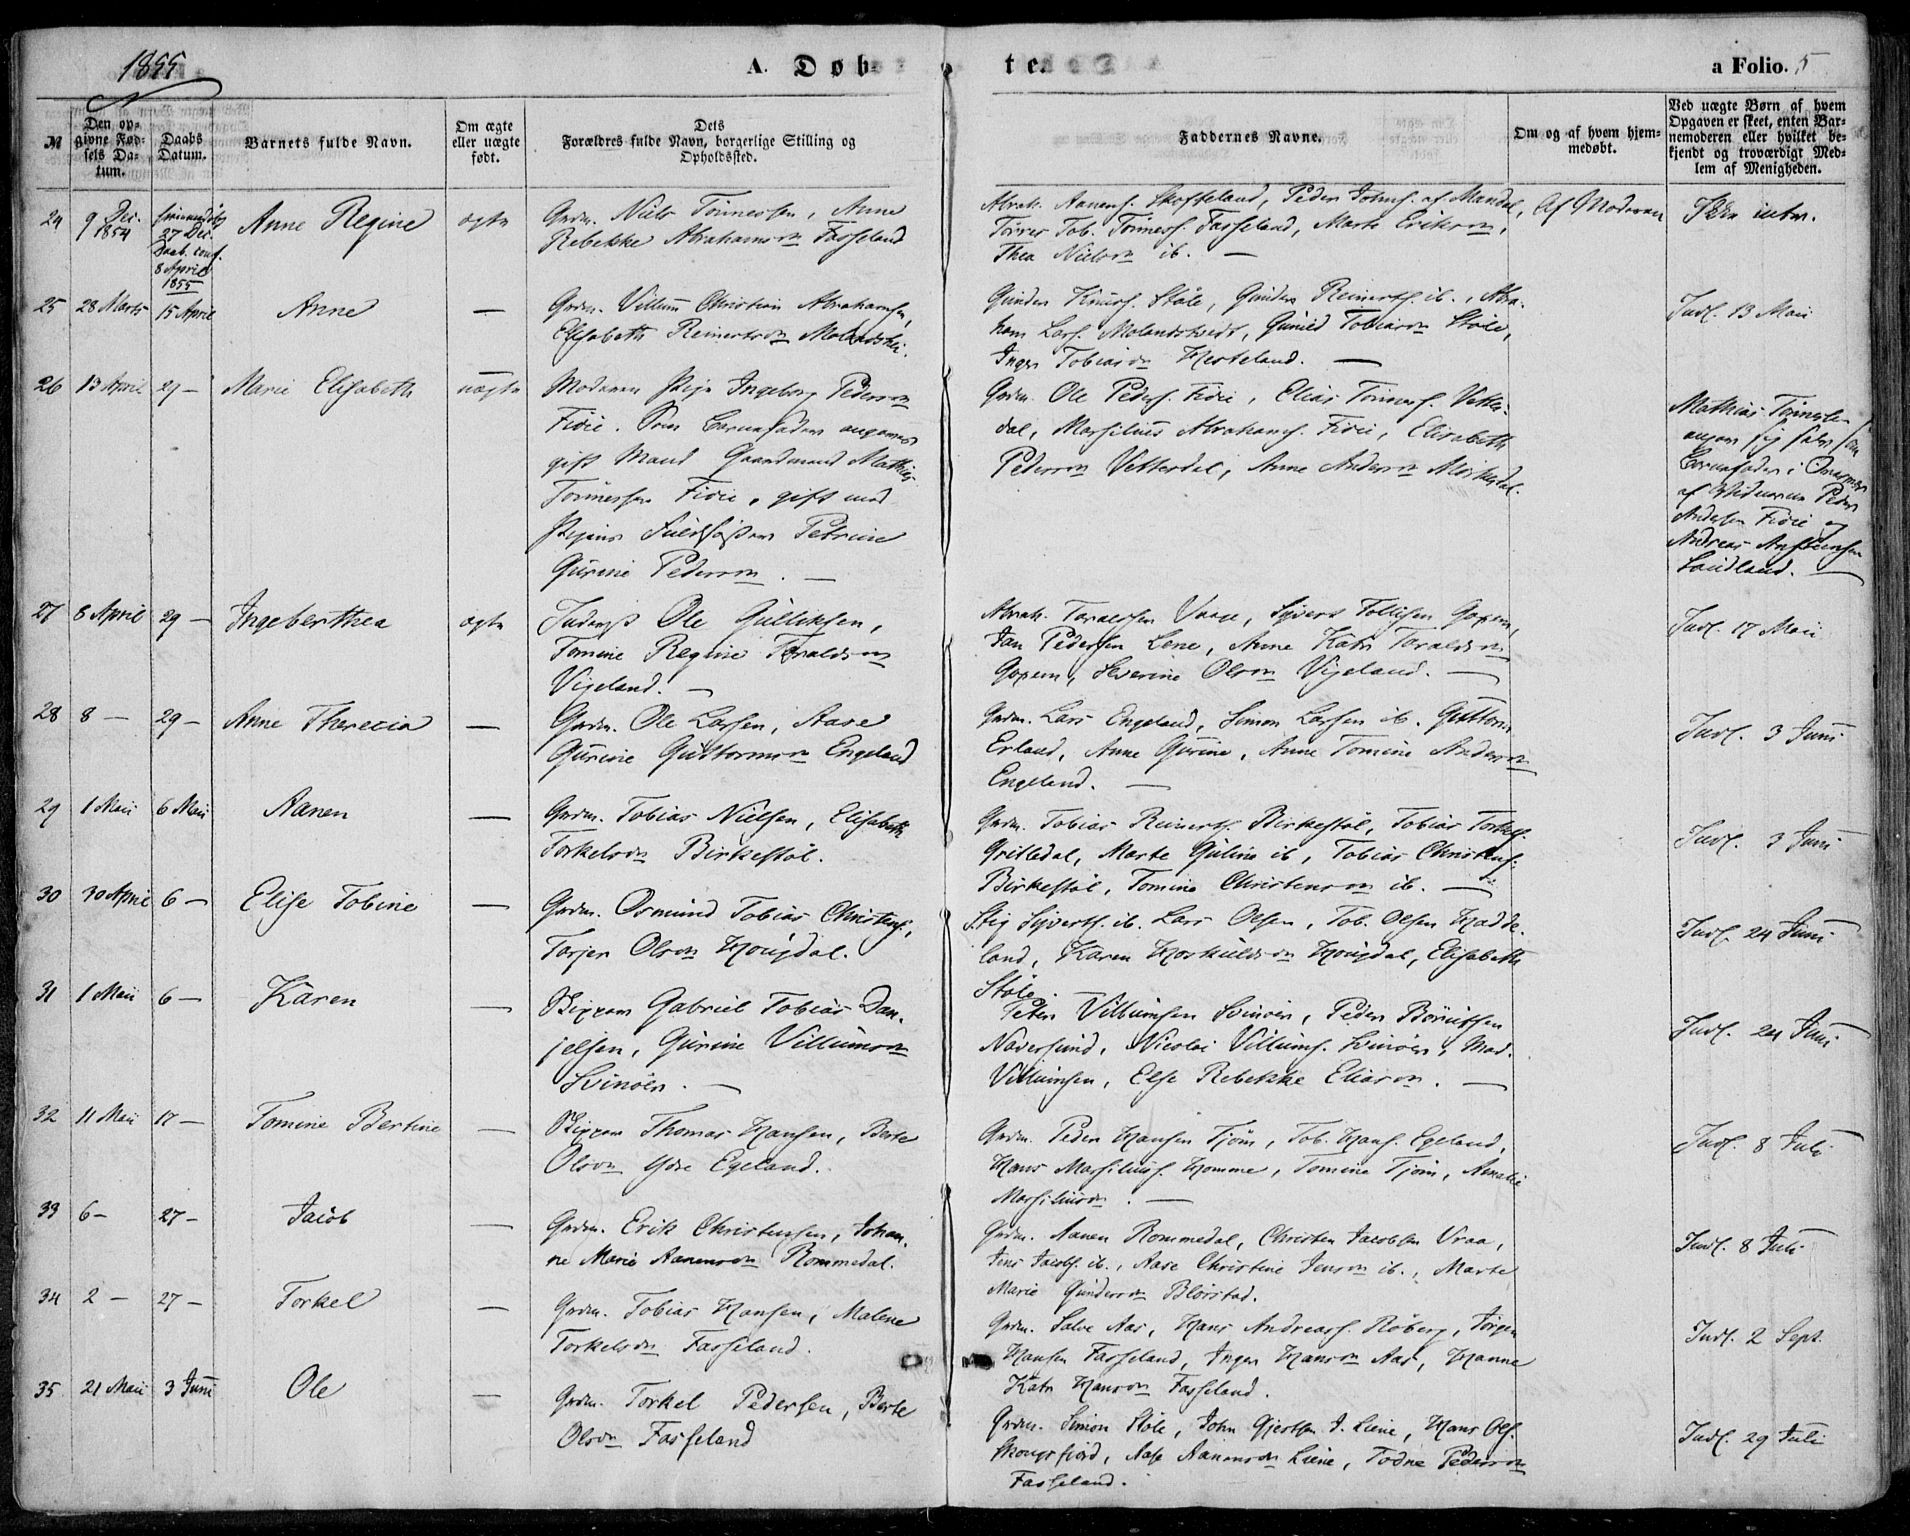 1855
A. Døb
te.
a Folio. 5
№
Den op-
givne Fød-
sels Da-
tum.
Daabs
Datum.
Barnets fulde Navn.
Om ægte
eller uægte
født.
Dets
Forældres fulde Navn, borgerlige Stilling og
Opholdssted.
Faddernes Navne.
Om og af hvem hjem-
medøbt.
Ved uægte Børn af hvem
Opgaven er skeet, enten Bar-
nemoderen eller hvilket be-
kjendt og troværdigt Med-
lem af Menigheden.
24
9 Dec.
1854
27 Dec.
Daab. conf.
8 April
1855
Anne Regine
ægte
Grdm. Niels Tönnessen, Anne
Rebekke Abrahamsdn Fasseland
Abrah. Aanens. Skofteland, Peder Johns. af Mandal,
Tob. Tönness. Fasseland, Marte Eriksdn,
Thea Nielsdn ib. —
Af Moderen
Ikke intr.
25
28 Marts
15 April
Anne
—
Grdm. Villum Christian Abrahamsen,
Elisabeth Reinertsdn Molandshei.
Gunder Knuds. Støle, Gunder Reinerts. ib., Abra-
ham Lars. Molandstvedt, Gunild Tobiasdn Støle,
Inger Tobiasdn Hesteland. —
Indl. 13 Mai
26
13 April
29 —
Marie Elisabeth
uægte
Moderen Pige Ingeborg Pedersdn
Fidie. Som Barnefader angaves
gift Mand Gaardmand Mathias
Tönnessen Fidie, gift med
Pigens Petrine
Gurine Pedersdn. —
Grdm. Ole Peders. Fidie, Elias Tönness. Vetter-
dal, Marsilius Abrahams. Fidie, Elisabeth
Pedersdn Vetterdal, Anne Andersdn
Mathias Tönnessen
angav sig selv som
Barnefader i Overvær
af Vidnerne Peder
Andersen Fidie og
Andreas
27
8 April
29 —
Ingeberthea
ægte
Inderst Ole Gulliksen,
Tomine Regine Taraldsdn
Vigeland. —
Abrah. Taraldsen Syvert Tollisen
Jan Pedersen Lene, Anne Kath. Taraldsdn
Severine Olsdn Vigeland. —
Indl. 17 Mai
28
8 —
29 —
Anne Therecia
—
Grdm. Ole Larsen, Aase
Gurine Guttormsdn Engeland
Grdm. Lars Engeland, Simon Larsen ib. Guttorm
Erland, Anne Gurine, Anne Tomine Andersdn
Engeland. —
Indl. 3 Juni
29
1 Mai
6 Mai
Aanen
—
Grdm. Tobias Nielsen, Elisabeth
Torkelsdn Birkestøl.
Grdm. Tobias Reinerts. Birkestøl, Tobias Torkels.
Gritledal, Marte Guline ib, Tobias Christens.
Birkestøl, Tomine Christensdn ib. —
Indl. 3 Juni
30
30 April
6 —
Elise Tobine
—
Grdm. Osmund Tobias Christens.,
Torjer Olsdn Hougdal.
Stig Syverts. ib. Lars Olsen, Tob. Olsen Hadde-
land, Karen Hoskuldsdn Hougdal, Elisabeth
Støle. —
Indl. 24 Juni
31
1 Mai
6 —
Karen
—
Skipper Gabriel Tobias Dan-
jelsen, Gurine Villumsdn
Svinöer. —
Peter Villumsen Svinöer, Peder Börufsen
Naversund, Nicolai Villums. Svinöer, Mad.
Villumsen, Else Rebekke Eliasdn. —
Indl. 24 Juni
32
11 Mai
17 —
Tomine Bertine
—
Skipper Thomas Hansen, Berte
Olsdn Ydre Egeland.
Grdm. Peder Hansen Tjöm, Tob. Hans. Egeland,
Hans Marsilius. Homme, Tomine Tjöm, Amalie
Marsiliusdn. —
Indl. 8 Juli
33
6 —
27 —
Jacob
—
Grdm. Erik Christensen, Johan-
ne Marie Aanensdn Rommedal.
Grdm. Aanen Rommedal, Christen Jacobsen Vraa,
Jens Jacobs. ib., Aase Christine Jensdn ib., Marte
Marie Gundersdn Blörstad.
Indl. 8 Juli
34
2 —
27 —
Torkel
—
Grdm. Tobias Hansen, Malene
Torkelsdn Fasseland.
Grdm. Salve Aas, Hans Andreass. Röberg, Jörgen
Hansen Fasseland, Inger Hansdn Aas, Hanne
Kath. Hansdn Fasseland.
Indl. 2 Sept.
35
21 Mai
3 Juni
Ole
—
Grdm. Torkel Pedersen, Berte
Olsdn Fasseland
Grdm. Simon Støle, John Gjertsen I. Liene, Hans Ols.
Skougsfiord, Aase Aanensdn Liene, Todne Pedersdn
Fasseland.
Indl. 29 Juli